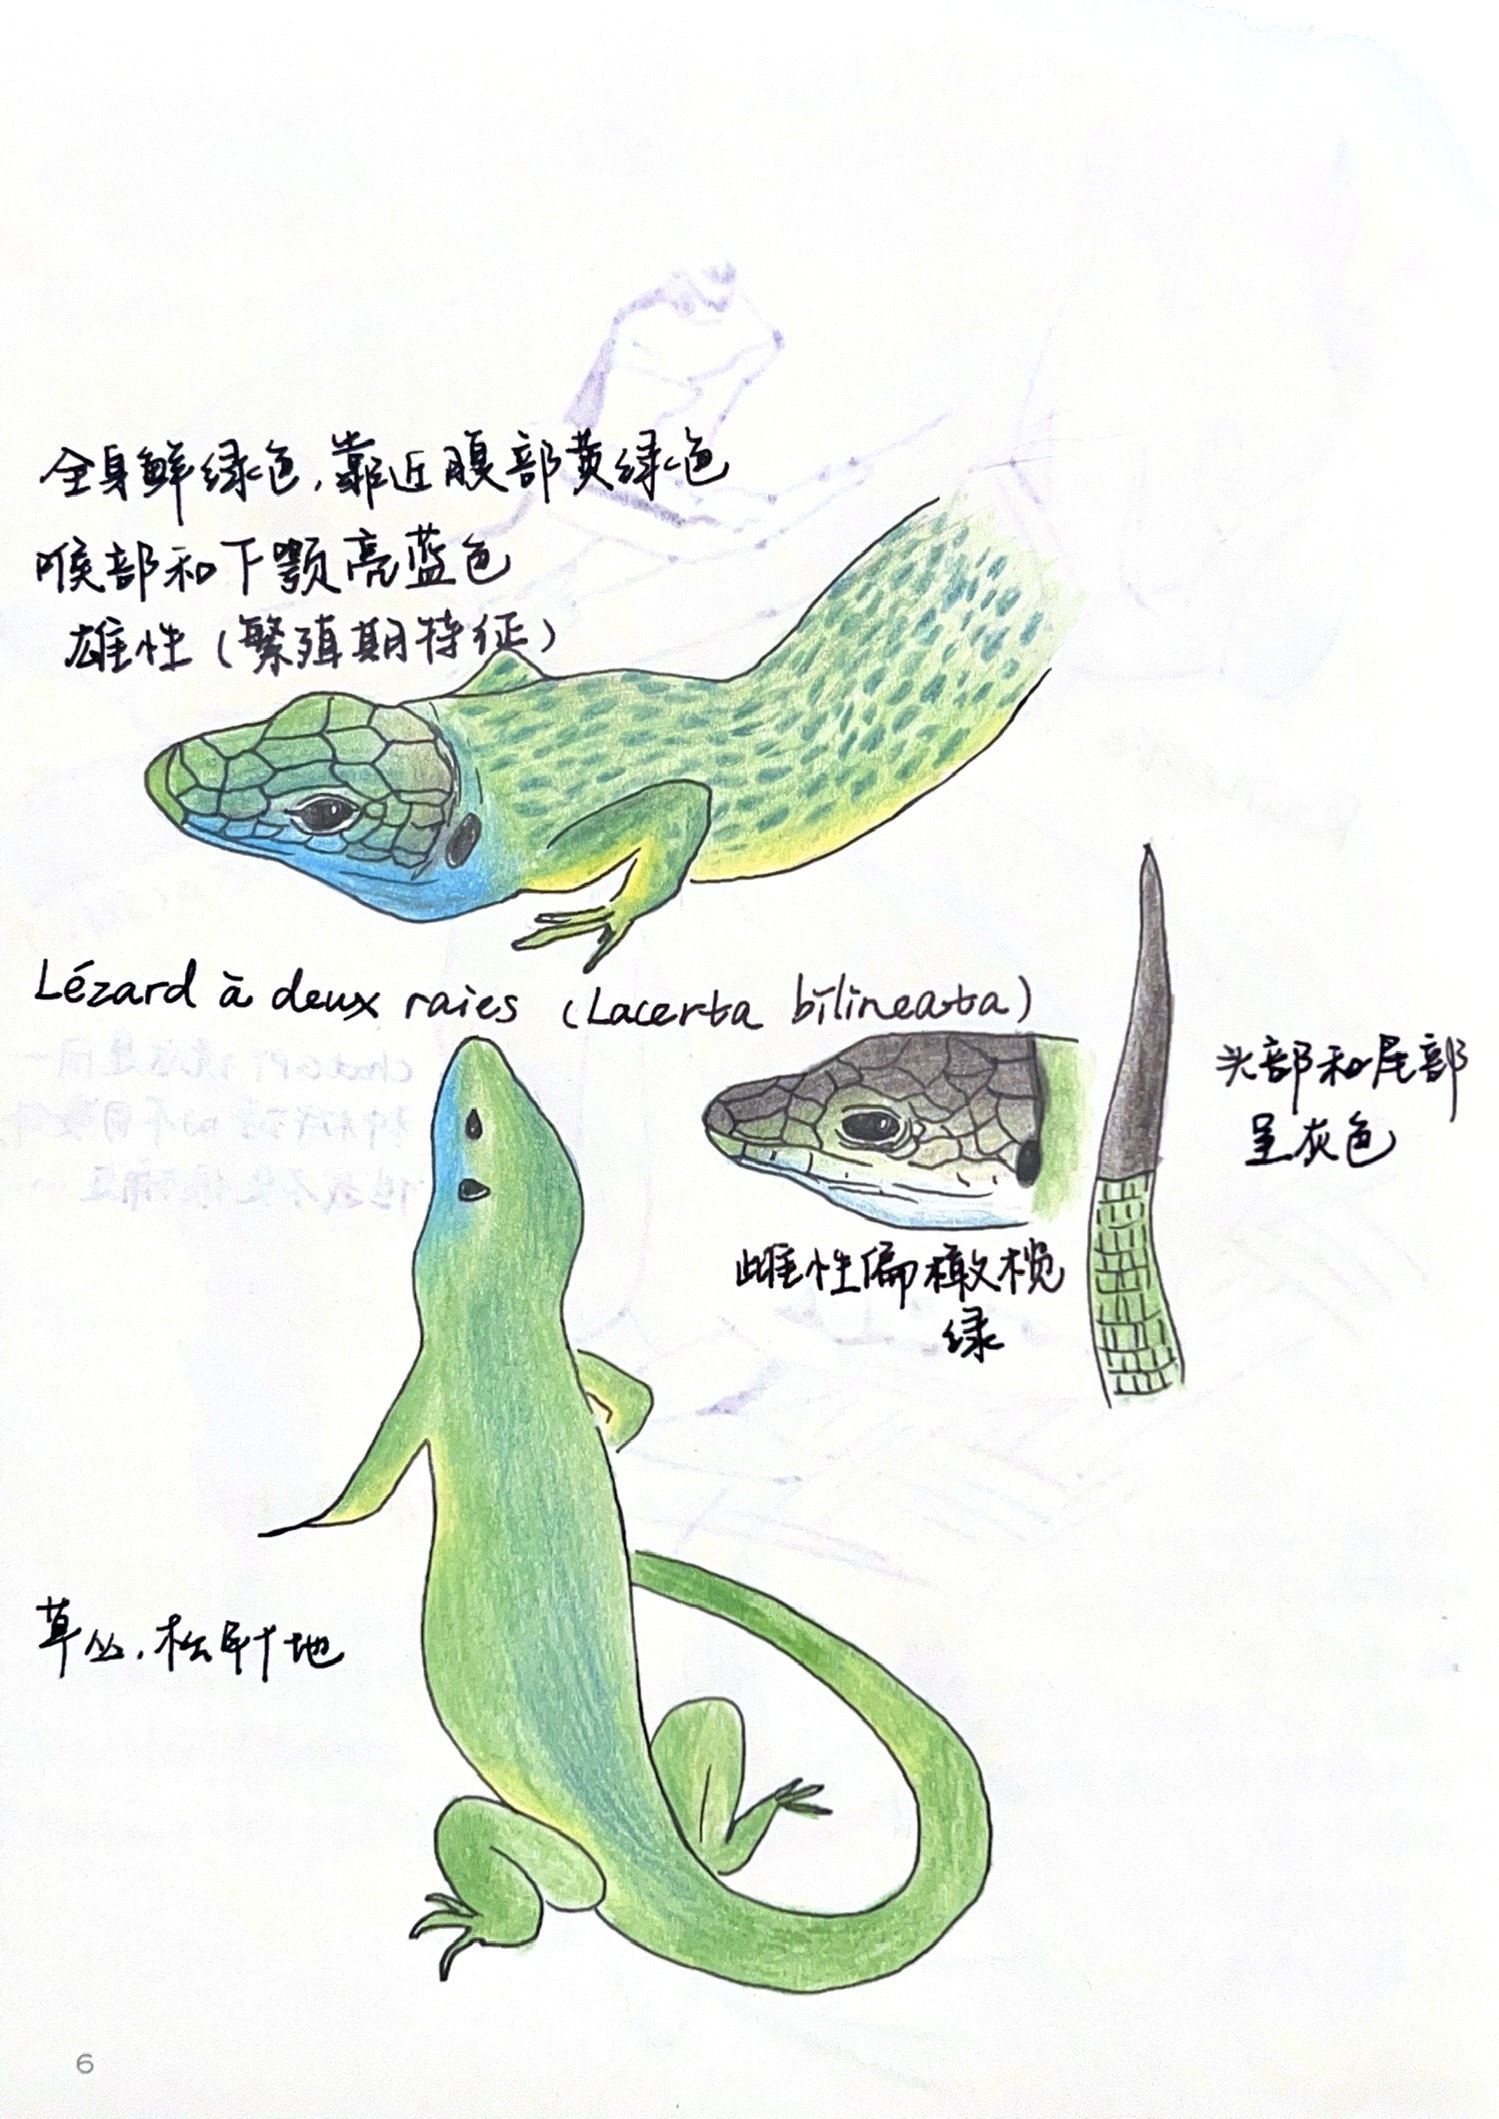 全身鲜绿色,靠近腹部黄绿色
喉部和下颚亮蓝色
雄性(繁殖期特征)
Lézard à deux raies (Lacerta bilineata)
头部和尾部
呈灰色
雌性偏橄榄
绿
草丛,松针地
6